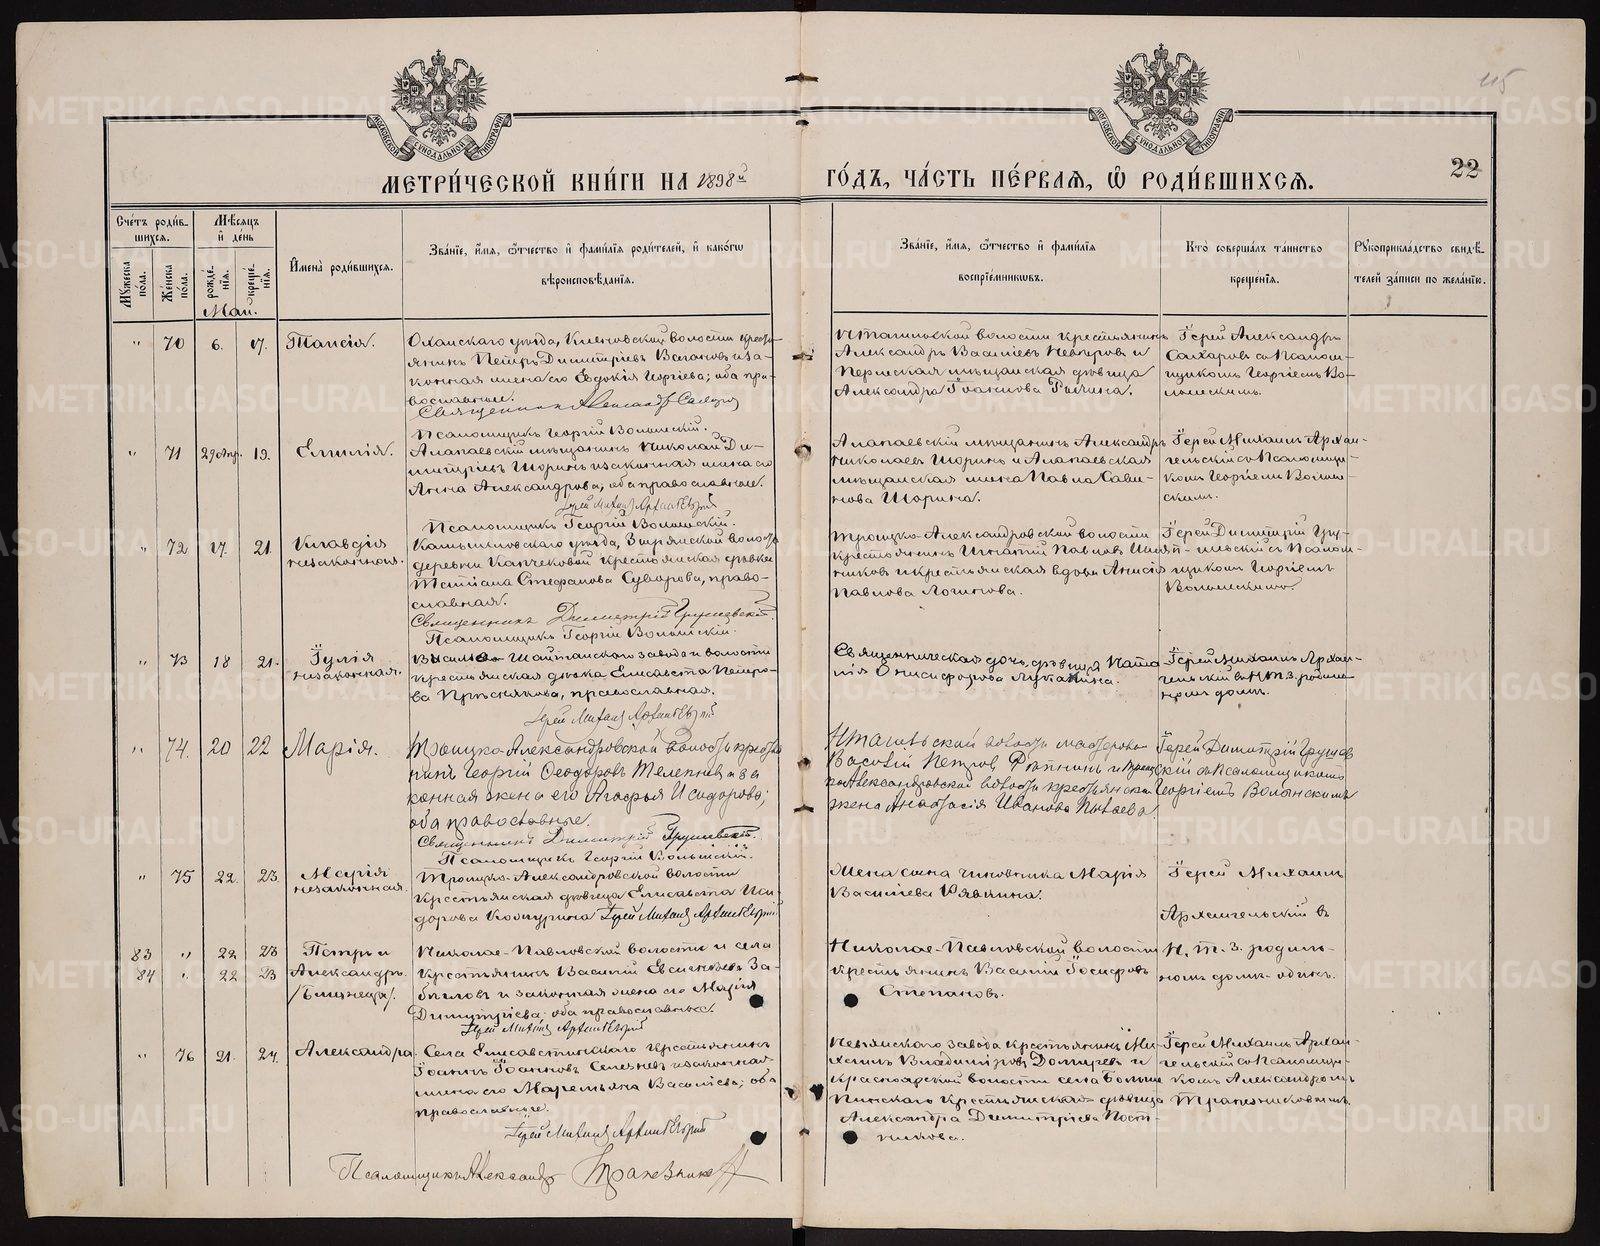 115
22
МЕТРИ́ЧЕСКОЙ КНИ́ГИ НА 1898й
ГО́ДЪ, ЧА́СТЬ ПЕ́РВАЯ, Ѡ РОДИ́ВШИХСЯ.
Сче́тъ роди́в-
шихся.
Му́жеска по́ла.
Же́нска по́ла.
Мѣ́сяцъ
и де́нь
рожде́нія.
креще́нія.
Имена̀ роди́вшихся.
Зва́ніе, и́мя, ѻ́тчество и фами́лія роди́телей, и како́гѡ
вѣроисповѣ́данія.
Зва́ніе, и́мя, ѻ́тчество и фами́лія
воспріе́мникѡвъ.
Кто̀ соверша́лъ та́инство
креще́нія.
Рукоприкла́дство свидѣ́-
телей за́писи по жела́нію.
Май.
" 70 6. 17. Таисія.
Оханскаго уѣзда, Кленовской волости кресть-
янинъ Петръ Димитріевъ Вагановъ и за-
конная жена его Евдокія Георгіева; оба пра-
вославные.
Священникъ Александръ Сахаровъ
Псаломщикъ Георгій Волынскій.
александръ Васильевъ и
Пермская мѣщанская дѣвица
Александра Іоаннова
Іерей Александръ
Сахаровъ со псалом-
щикомъ Георгіемъ Во-
лынскимъ.
" 71 29 апр. 19. Емилія.
Алапаевскій мѣщанинъ Николай Ди-
митріевъ Шоринъ и законная жена его
Анна Александрова; оба православные.
Іерей Михаилъ Архангельскій
Псаломщикъ Георгій Волынскій.
Алапаевскій мѣщанинъ Александръ
Николаевъ Шоринъ и Алапаевская
мѣщанская жена Павла Сави-
нова Шорина.
Іерей Михаилъ Архан-
гельскій со псаломщи-
комъ Георгіемъ Волын-
скимъ.
" 72 17. 21. Клавдія
незаконная.
Камышловскаго уѣзда, Зырянской волости
деревни крестьянская дѣвка
Татіана Стефанова Суворова, право-
славная.
Священникъ Димитрій Грушевскій
Псаломщикъ Георгій Волынскій.
Троицко-Александровской волости
крестьянинъ Игнатій Павловъ
и крестьянская вдова Анисія
Павлова Логинова.
Іерей Димитрій Гру-
шевскій съ псалом-
щикомъ Георгіемъ
Волынскимъ.
" 73 18 21. Іулія
незаконная.
Шайтанскаго завода и волости
крестьянская дѣвка Елисавета Петро-
ва Прѣснякова, православная.
Іерей Михаилъ Архангельскій
Священническая дочь, дѣвица
Онисифорова Лукакина.
Іерей Михаилъ Архан-
гельскій въ Н.Т.З. родиль-
номъ домѣ.
" 74. 20 22 Марія.
Троицко-Александровской волости кресть-
нинъ Георгій Ѳеодоровъ Телепневъ и за
конная жена его Агафья Исидорова;
оба православные.
Священникъ Димитрій Грушевскій.
Псаломщикъ Георгій Волынскій.
Василій Петровъ и Троиц-
ко Александровской волости крестьянская
жена Анастасія Иванова
Іерей Димитрій Грушев
скій съ псаломщикомъ
Георгіемъ Волынскимъ
" 75 22. 23. Марія
незаконная.
Троицко-Александровской волости
крестьянская дѣвица Елисавета Иси-
дорова Кошурина Іерей Михаилъ Архангельскій
Жена сына чиновника Марія
Васильева
Іерей Михаилъ
Архангельскій въ
83 " 22 23 Петръ и
84 " 22 23 Александръ
/близнецы/.
Николае-Павловской волости и села
крестьянинъ Василій За-
быловъ и законная жена его Марія
Димитріева; оба православные.
Іерей Михаилъ Архангельскій
Николае-Павловской волости
крестьянинъ Василій
Степановъ.
Н. Т. З. родиль-
номъ домѣ одинъ.
" 76 21. 24. Александра
Села Елисаветинскаго крестьянинъ
Іоаннъ Іоанновъ Селезневъ и законная
жена его Маремьяна Васильева; оба
православные.
Іерей Михаилъ Архангельскій
Псаломщикъ Александръ Трапезниковъ
Невьянскаго завода крестьянинъ Ми-
хаилъ Владиміровъ и
Красноярской волости села
крестьянская дѣвица
Александра Димитріева Пост-
никова.
Іерей Михаилъ Архан-
гельскій со псаломщи-
комъ Александромъ
Трапезниковымъ.
METRIKI.GASO-URAL.RU